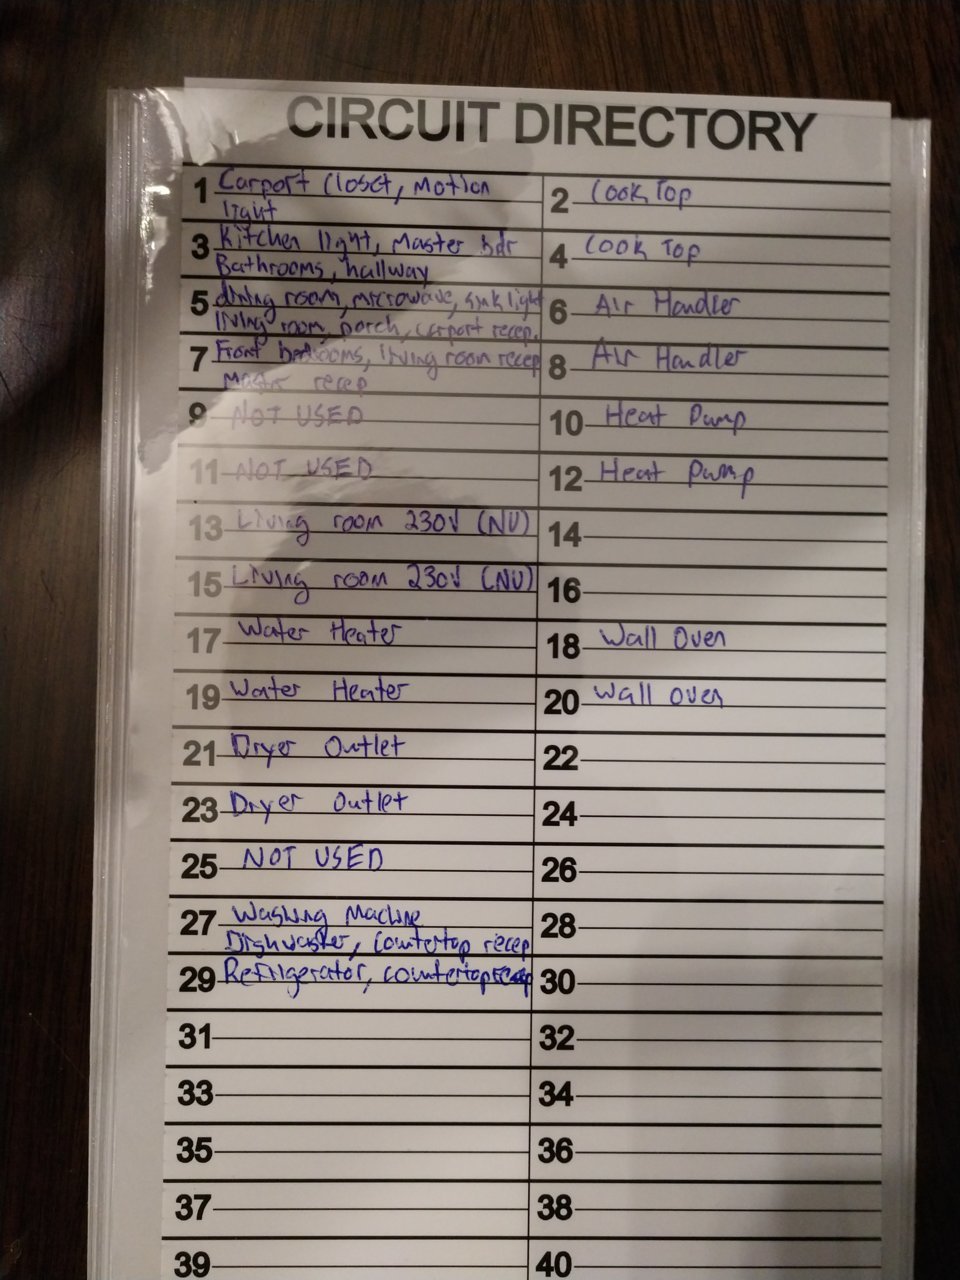 CIRCUIT DIRECTORY
1 Carport Closet, Motion
light
2 Cook Top
3 Kitchen light, Master bdr
Bathrooms, hallway
4 Cook Top
5 dining room, microwave, sink light
living room, porch, carport recep.
6 Air Handler
7 Front bedrooms, living room recep
Master recep
8 Air Handler
9 NOT USED
10 Heat Pump
11 NOT USED
12 Heat Pump
13 Living room 230V (NU)
14
15 Living room 230V (NU)
16
17 Water Heater
18 Wall Oven
19 Water Heater
20 Wall oven
21 Dryer Outlet
22
23 Dryer Outlet
24
25 NOT USED
26
27 Washing Machine
Dishwasher, Countertop recep
28
29 Refrigerator, countertop recep
30
31
32
33
34
35
36
37
38
39
40